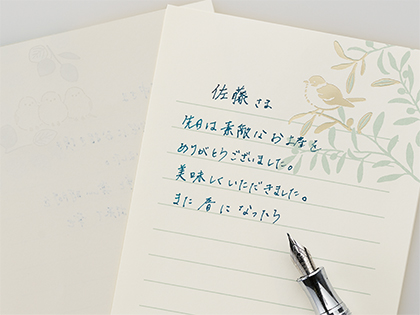 佐藤さま
先日は素敵なお土産を
ありがとうございました。
美味しくいただきました。
また春になったら